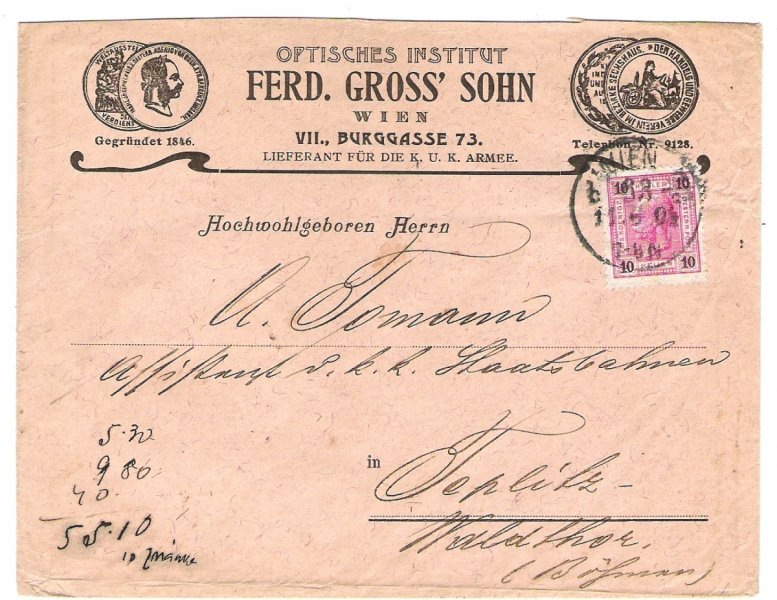 OPTISCHES INSTITUT
FERD. GROSS' SOHN
WIEN
VII., BURGGASSE 73.
LIEFERANT FÜR DIE K. U. K. ARMEE.
Gegründet 1846.
Telephon Nr. 9128.
WIEN
10 10
10 10
Hochwohlgeboren Herrn
A. Tomann
Assistent d. k. k. Staatsbahnen
in Teplitz-
Waldthor.
(Böhmen)
5.30
9 80
40.
55.10